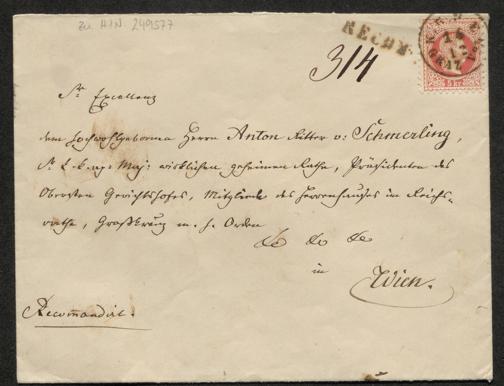 zu H.I.N. 249577
RECOM.
3/4
GRAZ
5 KR
Sr Excellenz
dem Hochwohlgebornen Herrn Anton Ritter v: Schmerling,
Sr k. k. ap: Maj: wirklichen geheimen Rathe, Präsidenten des
Obersten Gerichtshofes, Mitgliede des Herrenhauses im Reichs-
rathe, Großkreuz m. h. Orden
in
Wien.
Recom̄andirt.